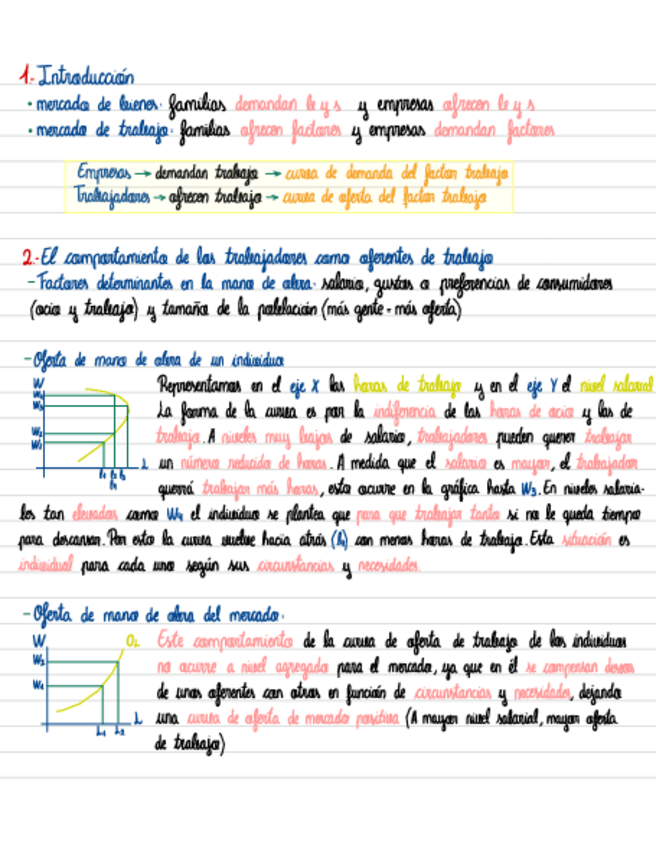 1.- Introducción
· mercado de bienes: familias demandan b y s y empresas ofrecen b y s
· mercado de trabajo: familias ofrecen factores y empresas demandan factores
Empresas → demandan trabajo → curva de demanda del factor trabajo
Trabajadores → ofrecen trabajo → curva de oferta del factor trabajo
2.- El comportamiento de los trabajadores como oferentes de trabajo
- Factores determinantes en la mano de obra: salario, gustos o preferencias de consumidores
(ocio y trabajo) y tamaño de la población (más gente = más oferta)
- Oferta de mano de obra de un individuo
W
W₄
W₃
W₂
W₁
L₁ L₂ L₃
L₄
L
Representamos en el eje X las horas de trabajo y en el eje Y el nivel salarial
La forma de la curva es por la indiferencia de las horas de ocio y las de
trabajo. A niveles muy bajos de salario, trabajadores pueden querer trabajar
un número reducido de horas. A medida que el salario es mayor, el trabajador
querrá trabajar más horas, esto ocurre en la gráfica hasta W₃. En niveles salaria-
les tan elevados como W₄ el individuo se plantea que para que trabajar tanto si no le queda tiempo
para descansar. Por esto la curva vuelve hacia atrás (L₄) con menos horas de trabajo. Esta situación es
individual para cada uno según sus circunstancias y necesidades.
- Oferta de mano de obra del mercado:
W
W₂
W₁
O_L
L₁ L₂
L
Este comportamiento de la curva de oferta de trabajo de los individuos
no ocurre a nivel agregado para el mercado, ya que en él se compensan deseos
de unos oferentes con otros en función de circunstancias y necesidades, dejando
una curva de oferta de mercado positiva (A mayor nivel salarial, mayor oferta
de trabajo)